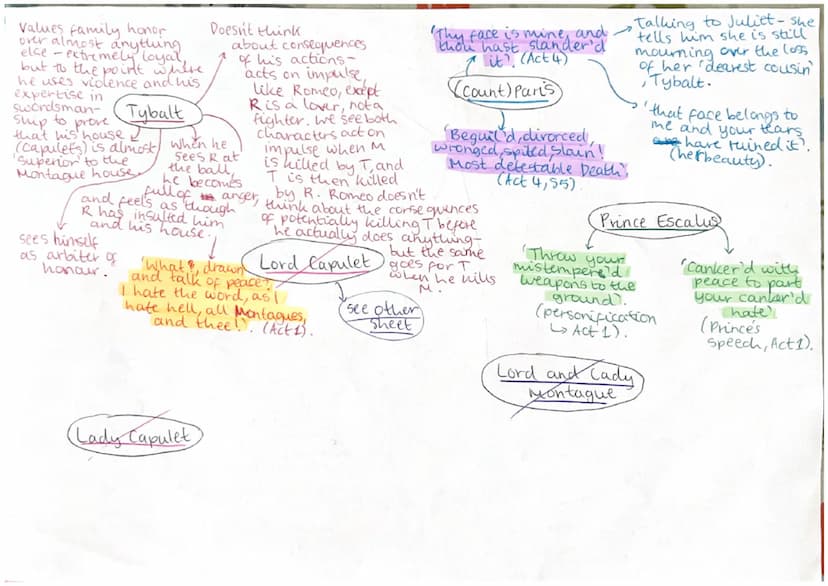 values family honor
over almost anything
else - extremely loyal
but to the point where
he uses violence and his
expertise in
swordsman-
ship to prove
that his house
(Capulets) is almost
'superior' to the
Montague house.
Tybalt
Doesn't think
about consequences
of his actions-
acts on impulse
like Romeo, except
R is a lover, not a
fighter. We see both
characters act on
impulse when M
is killed by T, and
T is then killed
by R. Romeo doesn't
think about the consequences
of potentially killing T before
he actually does anything-
but the same
goes for T
when he kills
M.
when he
sees R at
the ball,
he becomes
full of anger,
and feels as though
R has insulted him
and his house.
sees himself
as arbiter of
honour.
'What, drawn
and talk of peace?
I hate the word, as I
hate hell, all Montagues,
and thee!'. (Act 1).
Lord Capulet
see other
sheet
Lady Capulet
'Thy face is mine, and
thou hast slander'd
it'. (Act 4)
(Count) Paris
'Beguil'd, divorced
wronged, spited, slain!
Most detestable Death'.
(Act 4, S5)
Talking to Juliet - she
tells him she is still
mourning over the loss
of her 'dearest cousin',
Tybalt.
'that face belongs to
me and your tears
have ruined it'.
(her beauty).
Prince Escalus
'Throw your
mistemper'd
weapons to the
ground'.
(personification
↳ Act 1).
'Canker'd with
peace to part
your canker'd
hate'
(Prince's
speech, Act 1).
Lord and Lady
Montague